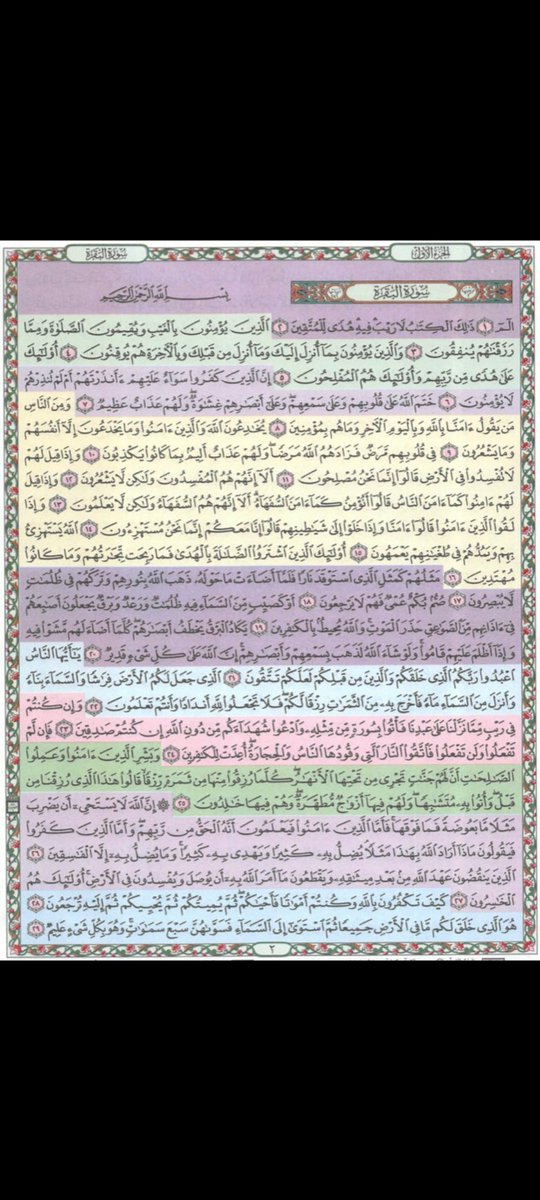 الجزء الأول
سورة البقرة
سورة البقرة
بسم الله الرحمن الرحيم
الٓمٓ ١ ذَٰلِكَ ٱلْكِتَٰبُ لَا رَيْبَ فِيهِ هُدًى لِّلْمُتَّقِينَ ٢ ٱلَّذِينَ يُؤْمِنُونَ بِٱلْغَيْبِ وَيُقِيمُونَ ٱلصَّلَوٰةَ وَمِمَّا
رَزَقْنَٰهُمْ يُنفِقُونَ ٣ وَٱلَّذِينَ يُؤْمِنُونَ بِمَآ أُنزِلَ إِلَيْكَ وَمَآ أُنزِلَ مِن قَبْلِكَ وَبِٱلْءَاخِرَةِ هُمْ يُوقِنُونَ ٤ أُو۟لَٰٓئِكَ
عَلَىٰ هُدًى مِّن رَّبِّهِمْ وَأُو۟لَٰٓئِكَ هُمُ ٱلْمُفْلِحُونَ ٥ إِنَّ ٱلَّذِينَ كَفَرُوا۟ سَوَآءٌ عَلَيْهِمْ ءَأَنذَرْتَهُمْ أَمْ لَمْ تُنذِرْهُمْ
لَا يُؤْمِنُونَ ٦ خَتَمَ ٱللَّهُ عَلَىٰ قُلُوبِهِمْ وَعَلَىٰ سَمْعِهِمْ وَعَلَىٰٓ أَبْصَٰرِهِمْ غِشَٰوَةٌ وَلَهُمْ عَذَابٌ عَظِيمٌ ٧ وَمِنَ ٱلنَّاسِ
مَن يَقُولُ ءَامَنَّا بِٱللَّهِ وَبِٱلْيَوْمِ ٱلْءَاخِرِ وَمَا هُم بِمُؤْمِنِينَ ٨ يُخَٰدِعُونَ ٱللَّهَ وَٱلَّذِينَ ءَامَنُوا۟ وَمَا يَخْدَعُونَ إِلَّآ أَنفُسَهُمْ
وَمَا يَشْعُرُونَ ٩ فِى قُلُوبِهِم مَّرَضٌ فَزَادَهُمُ ٱللَّهُ مَرَضًا وَلَهُمْ عَذَابٌ أَلِيمٌۢ بِمَا كَانُوا۟ يَكْذِبُونَ ١٠ وَإِذَا قِيلَ لَهُمْ
لَا تُفْسِدُوا۟ فِى ٱلْأَرْضِ قَالُوٓا۟ إِنَّمَا نَحْنُ مُصْلِحُونَ ١١ أَلَآ إِنَّهُمْ هُمُ ٱلْمُفْسِدُونَ وَلَٰكِن لَّا يَشْعُرُونَ ١٢ وَإِذَا قِيلَ
لَهُمْ ءَامِنُوا۟ كَمَآ ءَامَنَ ٱلنَّاسُ قَالُوٓا۟ أَنُؤْمِنُ كَمَآ ءَامَنَ ٱلسُّفَهَآءُ أَلَآ إِنَّهُمْ هُمُ ٱلسُّفَهَآءُ وَلَٰكِن لَّا يَعْلَمُونَ ١٣ وَإِذَا
لَقُوا۟ ٱلَّذِينَ ءَامَنُوا۟ قَالُوٓا۟ ءَامَنَّا وَإِذَا خَلَوْا۟ إِلَىٰ شَيَٰطِينِهِمْ قَالُوٓا۟ إِنَّا مَعَكُمْ إِنَّمَا نَحْنُ مُسْتَهْزِءُونَ ١٤ ٱللَّهُ يَسْتَهْزِئُ
بِهِمْ وَيَمُدُّهُمْ فِى طُغْيَٰنِهِمْ يَعْمَهُونَ ١٥ أُو۟لَٰٓئِكَ ٱلَّذِينَ ٱشْتَرَوُا۟ ٱلضَّلَٰلَةَ بِٱلْهُدَىٰ فَمَا رَبِحَت تِّجَٰرَتُهُمْ وَمَا كَانُوا۟
مُهْتَدِينَ ١٦ مَثَلُهُمْ كَمَثَلِ ٱلَّذِى ٱسْتَوْقَدَ نَارًا فَلَمَّآ أَضَآءَتْ مَا حَوْلَهُۥ ذَهَبَ ٱللَّهُ بِنُورِهِمْ وَتَرَكَهُمْ فِى ظُلُمَٰتٍ
لَّا يُبْصِرُونَ ١٧ صُمٌّۢ بُكْمٌ عُمْىٌ فَهُمْ لَا يَرْجِعُونَ ١٨ أَوْ كَصَيِّبٍ مِّنَ ٱلسَّمَآءِ فِيهِ ظُلُمَٰتٌ وَرَعْدٌ وَبَرْقٌ يَجْعَلُونَ أَصَٰبِعَهُمْ
فِىٓ ءَاذَانِهِم مِّنَ ٱلصَّوَٰعِقِ حَذَرَ ٱلْمَوْتِ وَٱللَّهُ مُحِيطٌۢ بِٱلْكَٰفِرِينَ ١٩ يَكَادُ ٱلْبَرْقُ يَخْطَفُ أَبْصَٰرَهُمْ كُلَّمَآ أَضَآءَ لَهُم مَّشَوْا۟ فِيهِ
وَإِذَآ أَظْلَمَ عَلَيْهِمْ قَامُوا۟ وَلَوْ شَآءَ ٱللَّهُ لَذَهَبَ بِسَمْعِهِمْ وَأَبْصَٰرِهِمْ إِنَّ ٱللَّهَ عَلَىٰ كُلِّ شَىْءٍ قَدِيرٌ ٢٠ يَٰٓأَيُّهَا ٱلنَّاسُ
ٱعْبُدُوا۟ رَبَّكُمُ ٱلَّذِى خَلَقَكُمْ وَٱلَّذِينَ مِن قَبْلِكُمْ لَعَلَّكُمْ تَتَّقُونَ ٢١ ٱلَّذِى جَعَلَ لَكُمُ ٱلْأَرْضَ فِرَٰشًا وَٱلسَّمَآءَ بِنَآءً
وَأَنزَلَ مِنَ ٱلسَّمَآءِ مَآءً فَأَخْرَجَ بِهِۦ مِنَ ٱلثَّمَرَٰتِ رِزْقًا لَّكُمْ فَلَا تَجْعَلُوا۟ لِلَّهِ أَندَادًا وَأَنتُمْ تَعْلَمُونَ ٢٢ وَإِن كُنتُمْ
فِى رَيْبٍ مِّمَّا نَزَّلْنَا عَلَىٰ عَبْدِنَا فَأْتُوا۟ بِسُورَةٍ مِّن مِّثْلِهِۦ وَٱدْعُوا۟ شُهَدَآءَكُم مِّن دُونِ ٱللَّهِ إِن كُنتُمْ صَٰدِقِينَ ٢٣ فَإِن لَّمْ
تَفْعَلُوا۟ وَلَن تَفْعَلُوا۟ فَٱتَّقُوا۟ ٱلنَّارَ ٱلَّتِى وَقُودُهَا ٱلنَّاسُ وَٱلْحِجَارَةُ أُعِدَّتْ لِلْكَٰفِرِينَ ٢٤ وَبَشِّرِ ٱلَّذِينَ ءَامَنُوا۟ وَعَمِلُوا۟
ٱلصَّٰلِحَٰتِ أَنَّ لَهُمْ جَنَّٰتٍ تَجْرِى مِن تَحْتِهَا ٱلْأَنْهَٰرُ كُلَّمَا رُزِقُوا۟ مِنْهَا مِن ثَمَرَةٍ رِّزْقًا قَالُوا۟ هَٰذَا ٱلَّذِى رُزِقْنَا مِن
قَبْلُ وَأُتُوا۟ بِهِۦ مُتَشَٰبِهًا وَلَهُمْ فِيهَآ أَزْوَٰجٌ مُّطَهَّرَةٌ وَهُمْ فِيهَا خَٰلِدُونَ ٢٥ ۞ إِنَّ ٱللَّهَ لَا يَسْتَحْىِۦٓ أَن يَضْرِبَ
مَثَلًا مَّا بَعُوضَةً فَمَا فَوْقَهَا فَأَمَّا ٱلَّذِينَ ءَامَنُوا۟ فَيَعْلَمُونَ أَنَّهُ ٱلْحَقُّ مِن رَّبِّهِمْ وَأَمَّا ٱلَّذِينَ كَفَرُوا۟
فَيَقُولُونَ مَاذَآ أَرَادَ ٱللَّهُ بِهَٰذَا مَثَلًا يُضِلُّ بِهِۦ كَثِيرًا وَيَهْدِى بِهِۦ كَثِيرًا وَمَا يُضِلُّ بِهِۦٓ إِلَّا ٱلْفَٰسِقِينَ ٢٦
ٱلَّذِينَ يَنقُضُونَ عَهْدَ ٱللَّهِ مِنۢ بَعْدِ مِيثَٰقِهِۦ وَيَقْطَعُونَ مَآ أَمَرَ ٱللَّهُ بِهِۦٓ أَن يُوصَلَ وَيُفْسِدُونَ فِى ٱلْأَرْضِ أُو۟لَٰٓئِكَ هُمُ
ٱلْخَٰسِرُونَ ٢٧ كَيْفَ تَكْفُرُونَ بِٱللَّهِ وَكُنتُمْ أَمْوَٰتًا فَأَحْيَٰكُمْ ثُمَّ يُمِيتُكُمْ ثُمَّ يُحْيِيكُمْ ثُمَّ إِلَيْهِ تُرْجَعُونَ ٢٨
هُوَ ٱلَّذِى خَلَقَ لَكُم مَّا فِى ٱلْأَرْضِ جَمِيعًا ثُمَّ ٱسْتَوَىٰٓ إِلَى ٱلسَّمَآءِ فَسَوَّىٰهُنَّ سَبْعَ سَمَٰوَٰتٍ وَهُوَ بِكُلِّ شَىْءٍ عَلِيمٌ ٢٩
٢